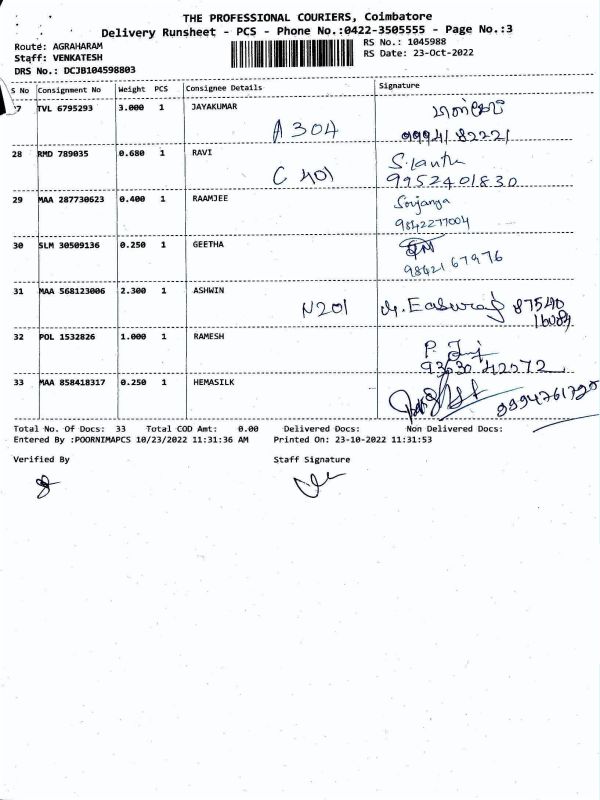 THE PROFESSIONAL COURIERS, Coimbatore
Delivery Runsheet - PCS - Phone No.:0422-3505555 - Page No.:3
Route: AGRAHARAM
Staff: VENKATESH
DRS No.: DCJB104598803
RS No.: 1045988
RS Date: 23-Oct-2022
S No Consignment No Weight PCS Consignee Details Signature
27 TVL 6795293 3.000 1 JAYAKUMAR
A 304 9994182221
28 RMD 789035 0.680 1 RAVI
C 401 9952401830
29 MAA 287730623 0.400 1 RAAMJEE Sowjanya
9842277004
30 SLM 30509136 0.250 1 GEETHA
98421 67976
31 MAA 568123006 2.300 1 ASHWIN
N201 87540
16084
32 POL 1532826 1.000 1 RAMESH
93630 42272
33 MAA 858418317 0.250 1 HEMASILK
Total No. Of Docs: 33 Total COD Amt: 0.00 Delivered Docs: Non Delivered Docs:
Entered By :POORNIMAPCS 10/23/2022 11:31:36 AM Printed On: 23-10-2022 11:31:53
Verified By Staff Signature